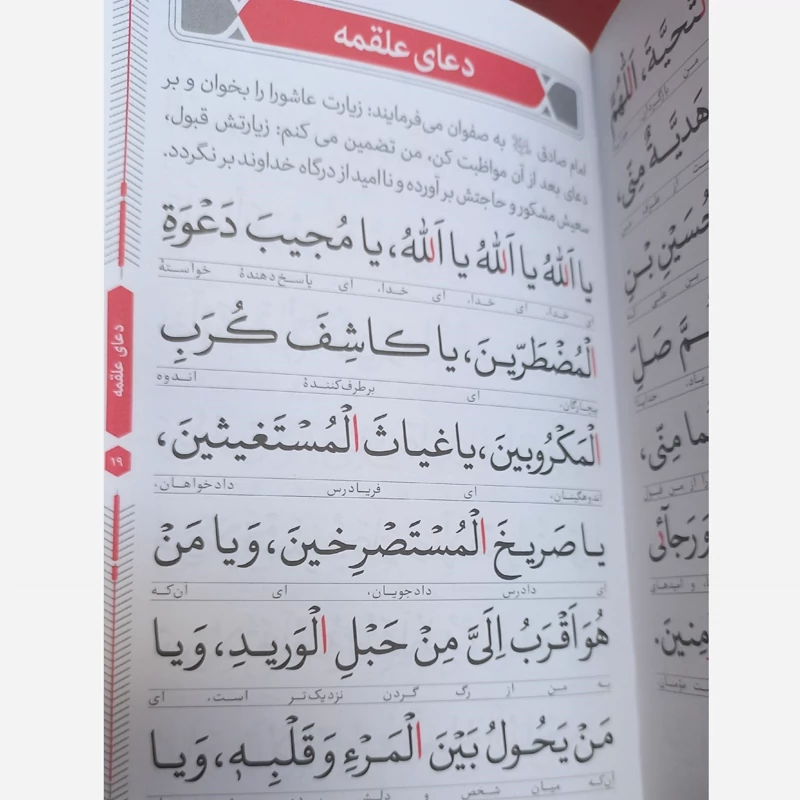 دعای علقمه
امام صادق ﷺ به صفوان می‌فرمایند: زیارت عاشورا را بخوان و بر
دعای بعد از آن مواظبت کن، من تضمین می کنم: زیارتش قبول،
سعیش مشکور و حاجتش برآورده و ناامید از درگاه خداوند برنگردد.
یا اَللّٰهُ یا اَللّٰهُ یا اَللّٰهُ، یا مُجیبَ دَعْوَةِ
ای خدا، ای خدا، ای خدا، ای پاسخ‌دهندهٔ خواستهٔ
الْمُضْطَرّینَ، یا کاشِفَ کُرَبِ
بیچارگان، ای برطرف‌کنندهٔ اندوه
الْمَکْرُوبینَ، یا غیاثَ الْمُسْتَغیثینَ،
اندوهگینان، ای فریادرس دادخواهان،
یا صَریخَ الْمُسْتَصْرِخینَ، وَ یا مَنْ
ای دادرس دادجویان، ای آن‌که
هُوَ اَقْرَبُ اِلَیَّ مِنْ حَبْلِ الْوَریدِ، وَ یا
به من از رگ گردن نزدیک‌تر است، ای
مَنْ یَحُولُ بَیْنَ الْمَرْءِ وَ قَلْبِهِ، وَ یا
آن‌که میان شخص و
دعای علقمه
۶۹
اَللّٰهُمَّ
هَدِیَّةٌ مِنّی،
حُسَیْنِ بْنِ
صَلِّ
مِنّی،
وَ رَجآئی